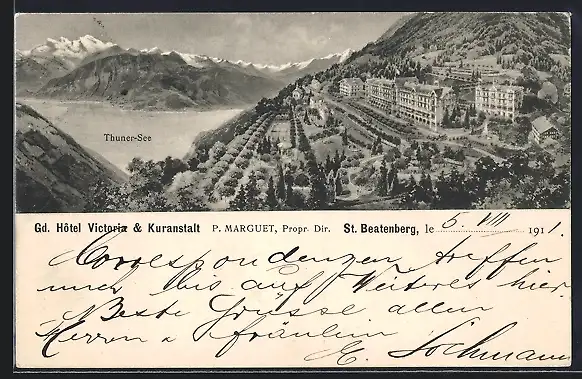 Thuner-See
Gd. Hôtel Victoria & Kuranstalt P. MARGUET, Propr. Dir. St. Beatenberg, le 5. VII 1911.
Correspondenzen treffen
mich bis auf Weiteres hier.
Beste Grüsse allen
Herren & Fräulein
E. Lochmann